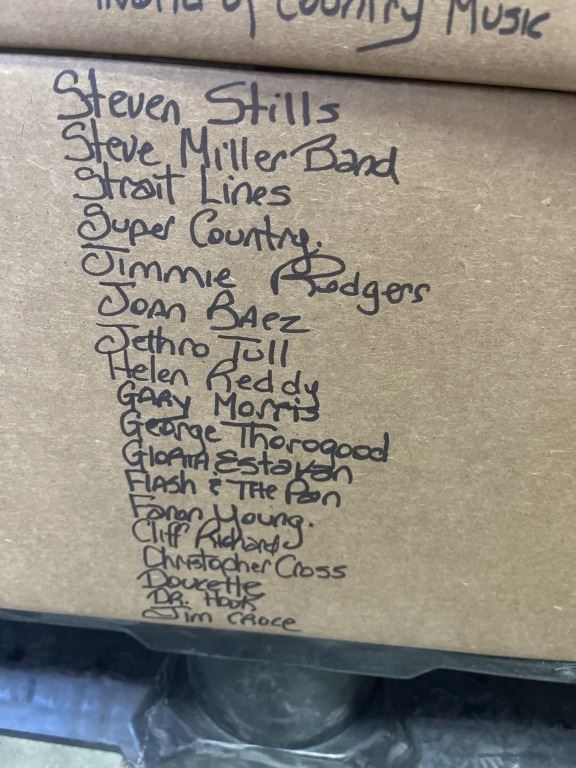 World of Country Music
Steven Stills
Steve Miller Band
Strait Lines
Super Country.
Jimmie Rodgers
Joan BAez
Jethro Tull
Helen Reddy
GARY Morris
George Thorogood
GloRiA Estavan
FlAsh & The Pan
Faron Young.
Cliff Richards
Christopher Cross
Doucette
DR. Hook
Jim CROCE